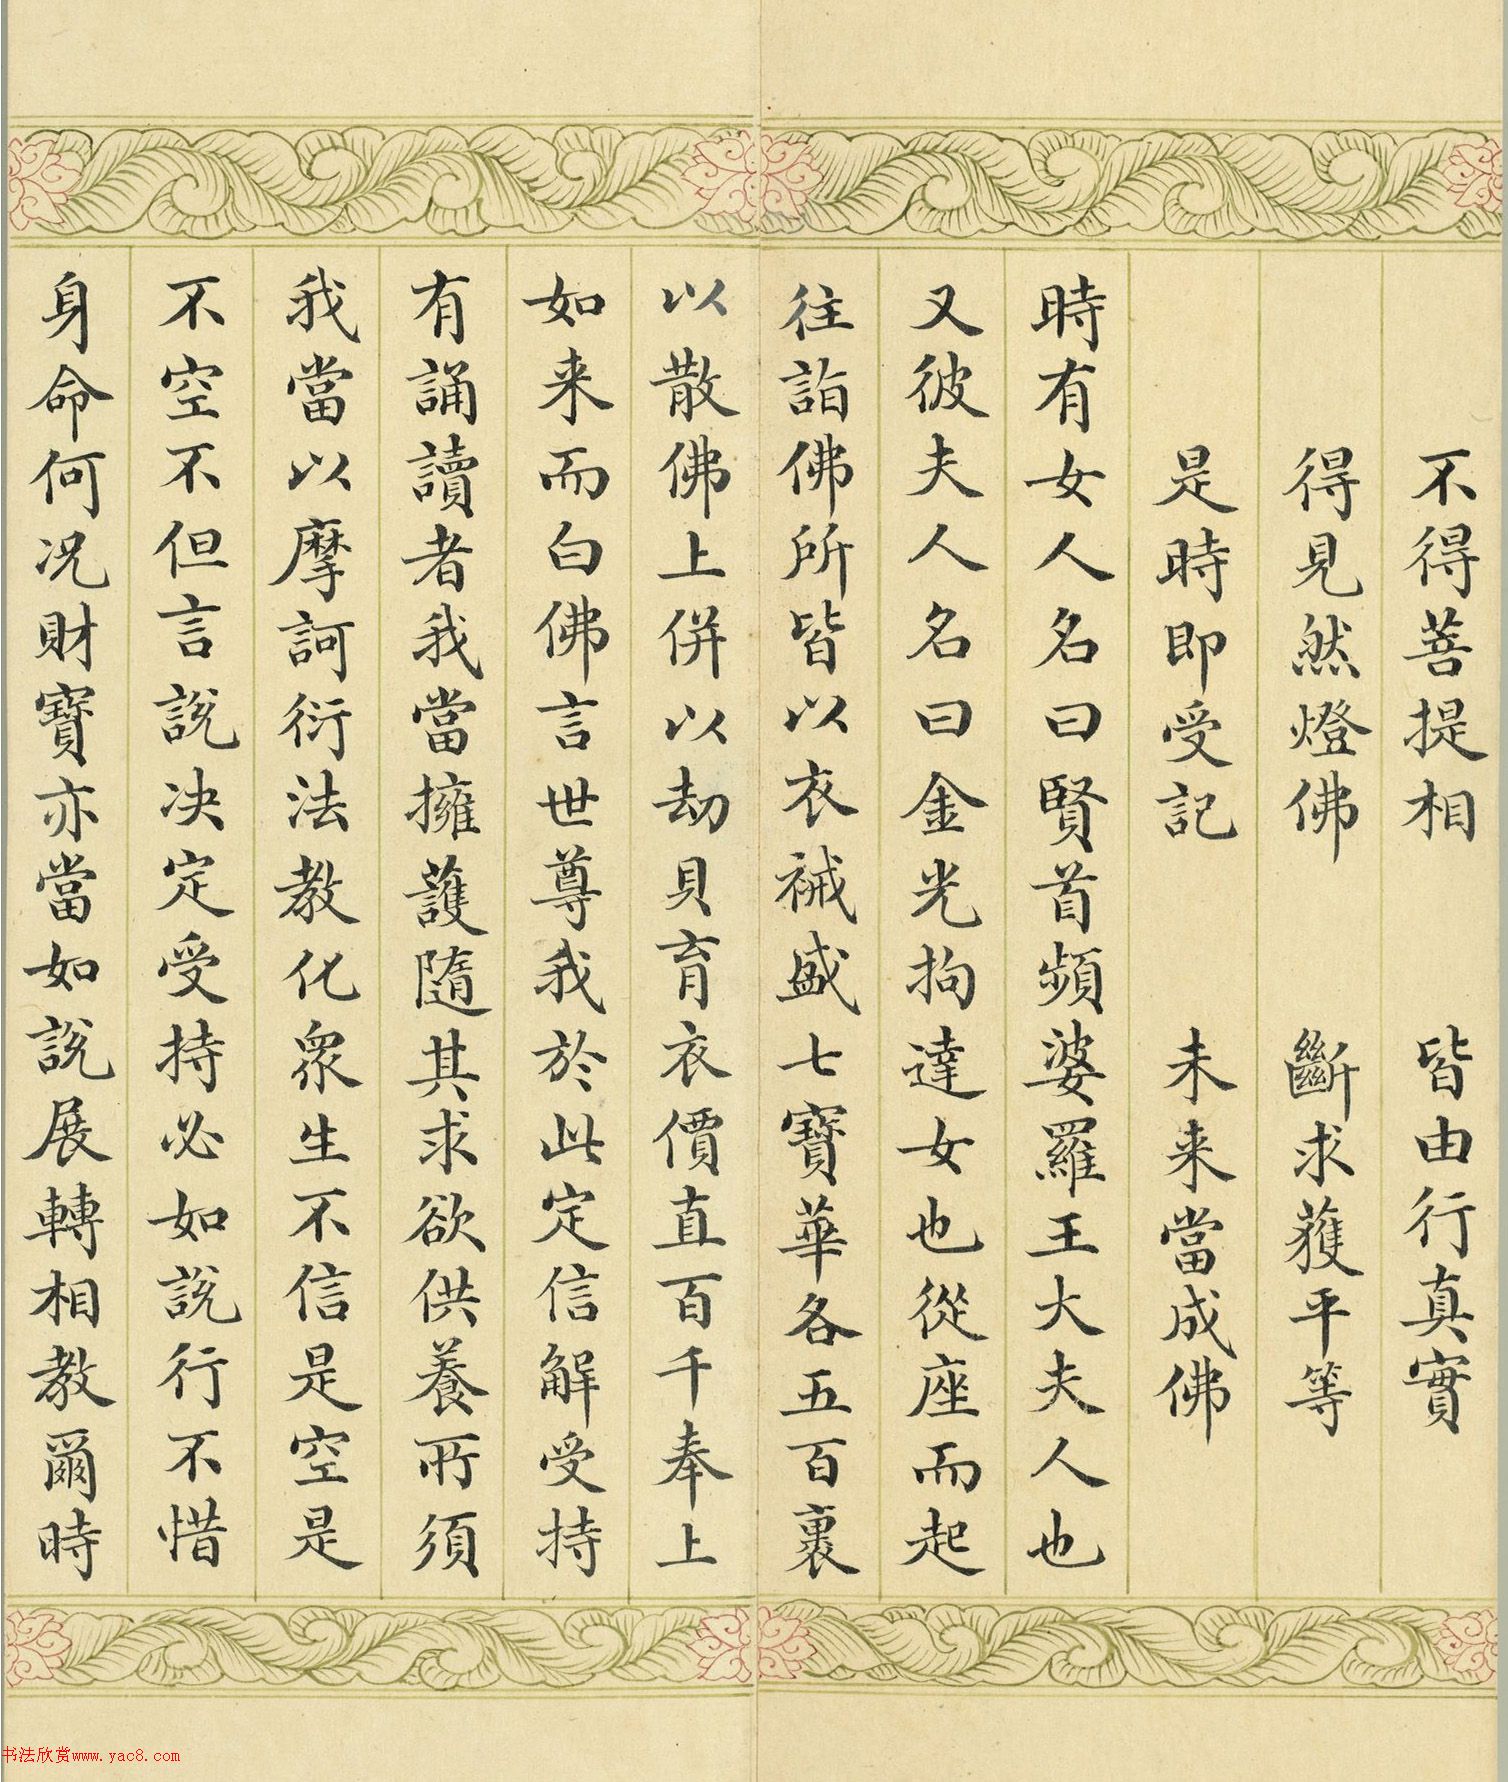 不得菩提相　皆由行真實
得見然燈佛　斷求獲平等
是時即受記　未来當成佛
時有女人名曰賢首頻婆羅王大夫人也
又彼夫人名曰金光拘達女也從座而起
往詣佛所皆以衣祴盛七寶華各五百裹
以散佛上併以劫貝育衣價直百千奉上
如来而白佛言世尊我於此定信解受持
有誦讀者我當擁護隨其求欲供養所須
我當以摩訶衍法教化眾生不信是空是
不空不但言說决定受持必如說行不惜
身命何况財寶亦當如說展轉相教爾時
书法欣赏www.yac8.com